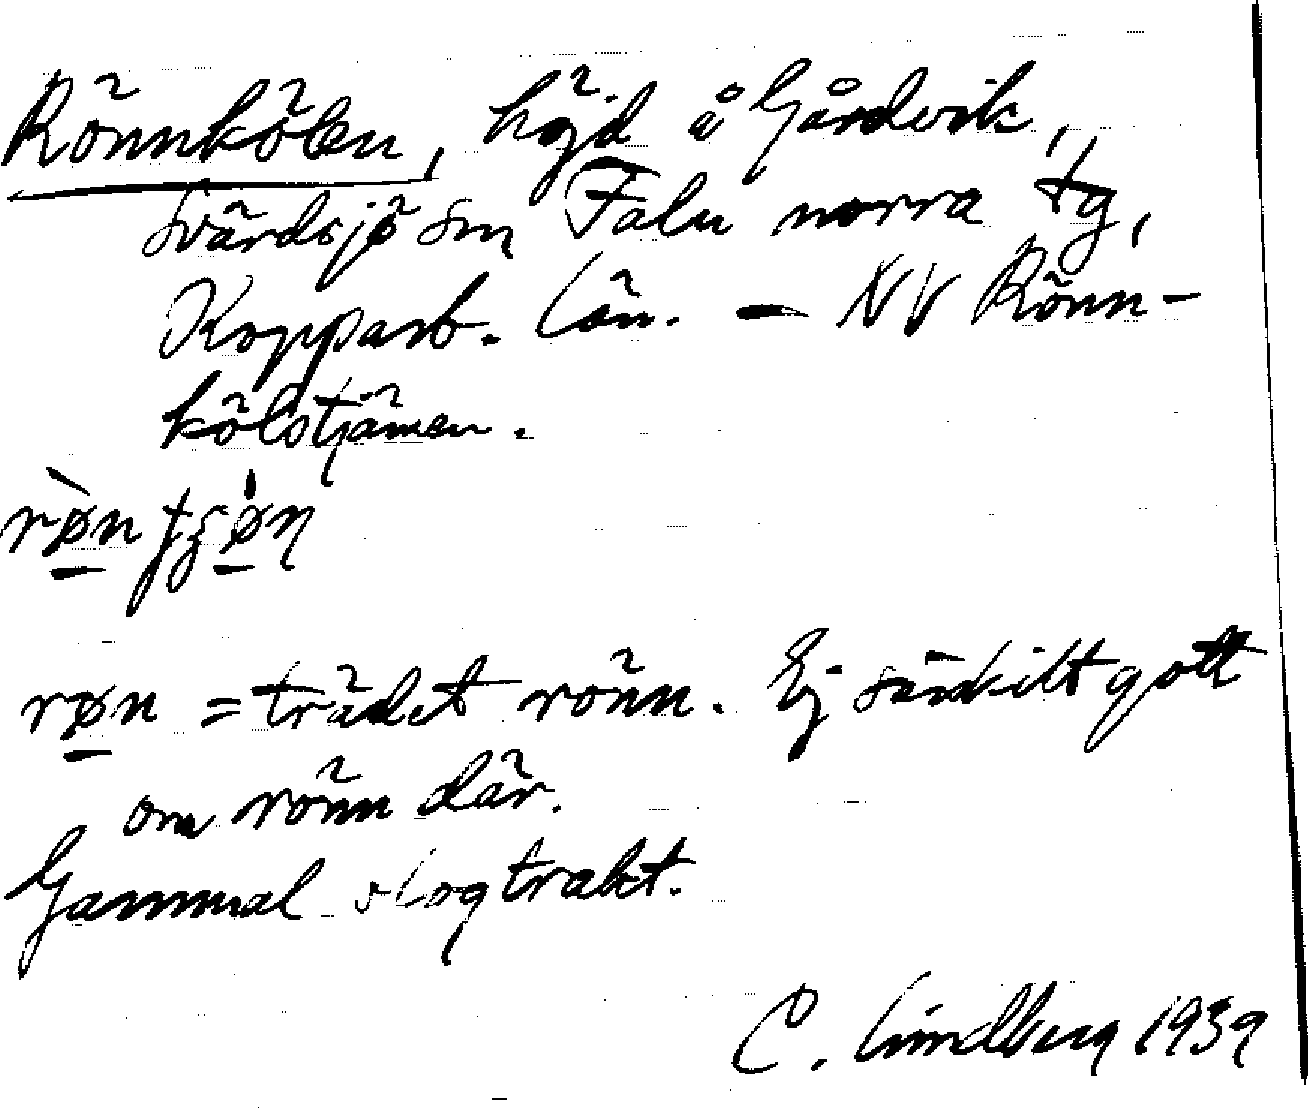 Rönnkölen, höjd å Gårdvik,
Svärdsjö sn, Falu norra tg,
Kopparb. län. — NV Rönn-
kölstjärnen.
rø̀n tʂø̍n
røn = trädet rönn. Ej särskilt gott
om rönn där.
Gammal slogtrakt.
C. Lindberg 1939